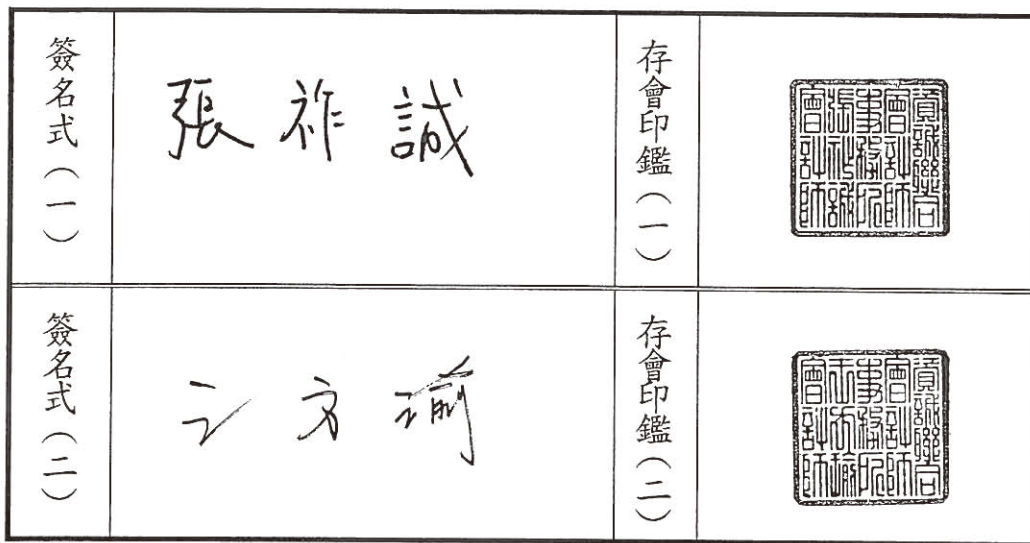 簽名式(一)
張祚誠
存會印鑑(一)
資誠聯合會計師事務所張祚誠會計師
簽名式(二)
存會印鑑(二)
資誠聯合會計師事務所王方瑜會計師